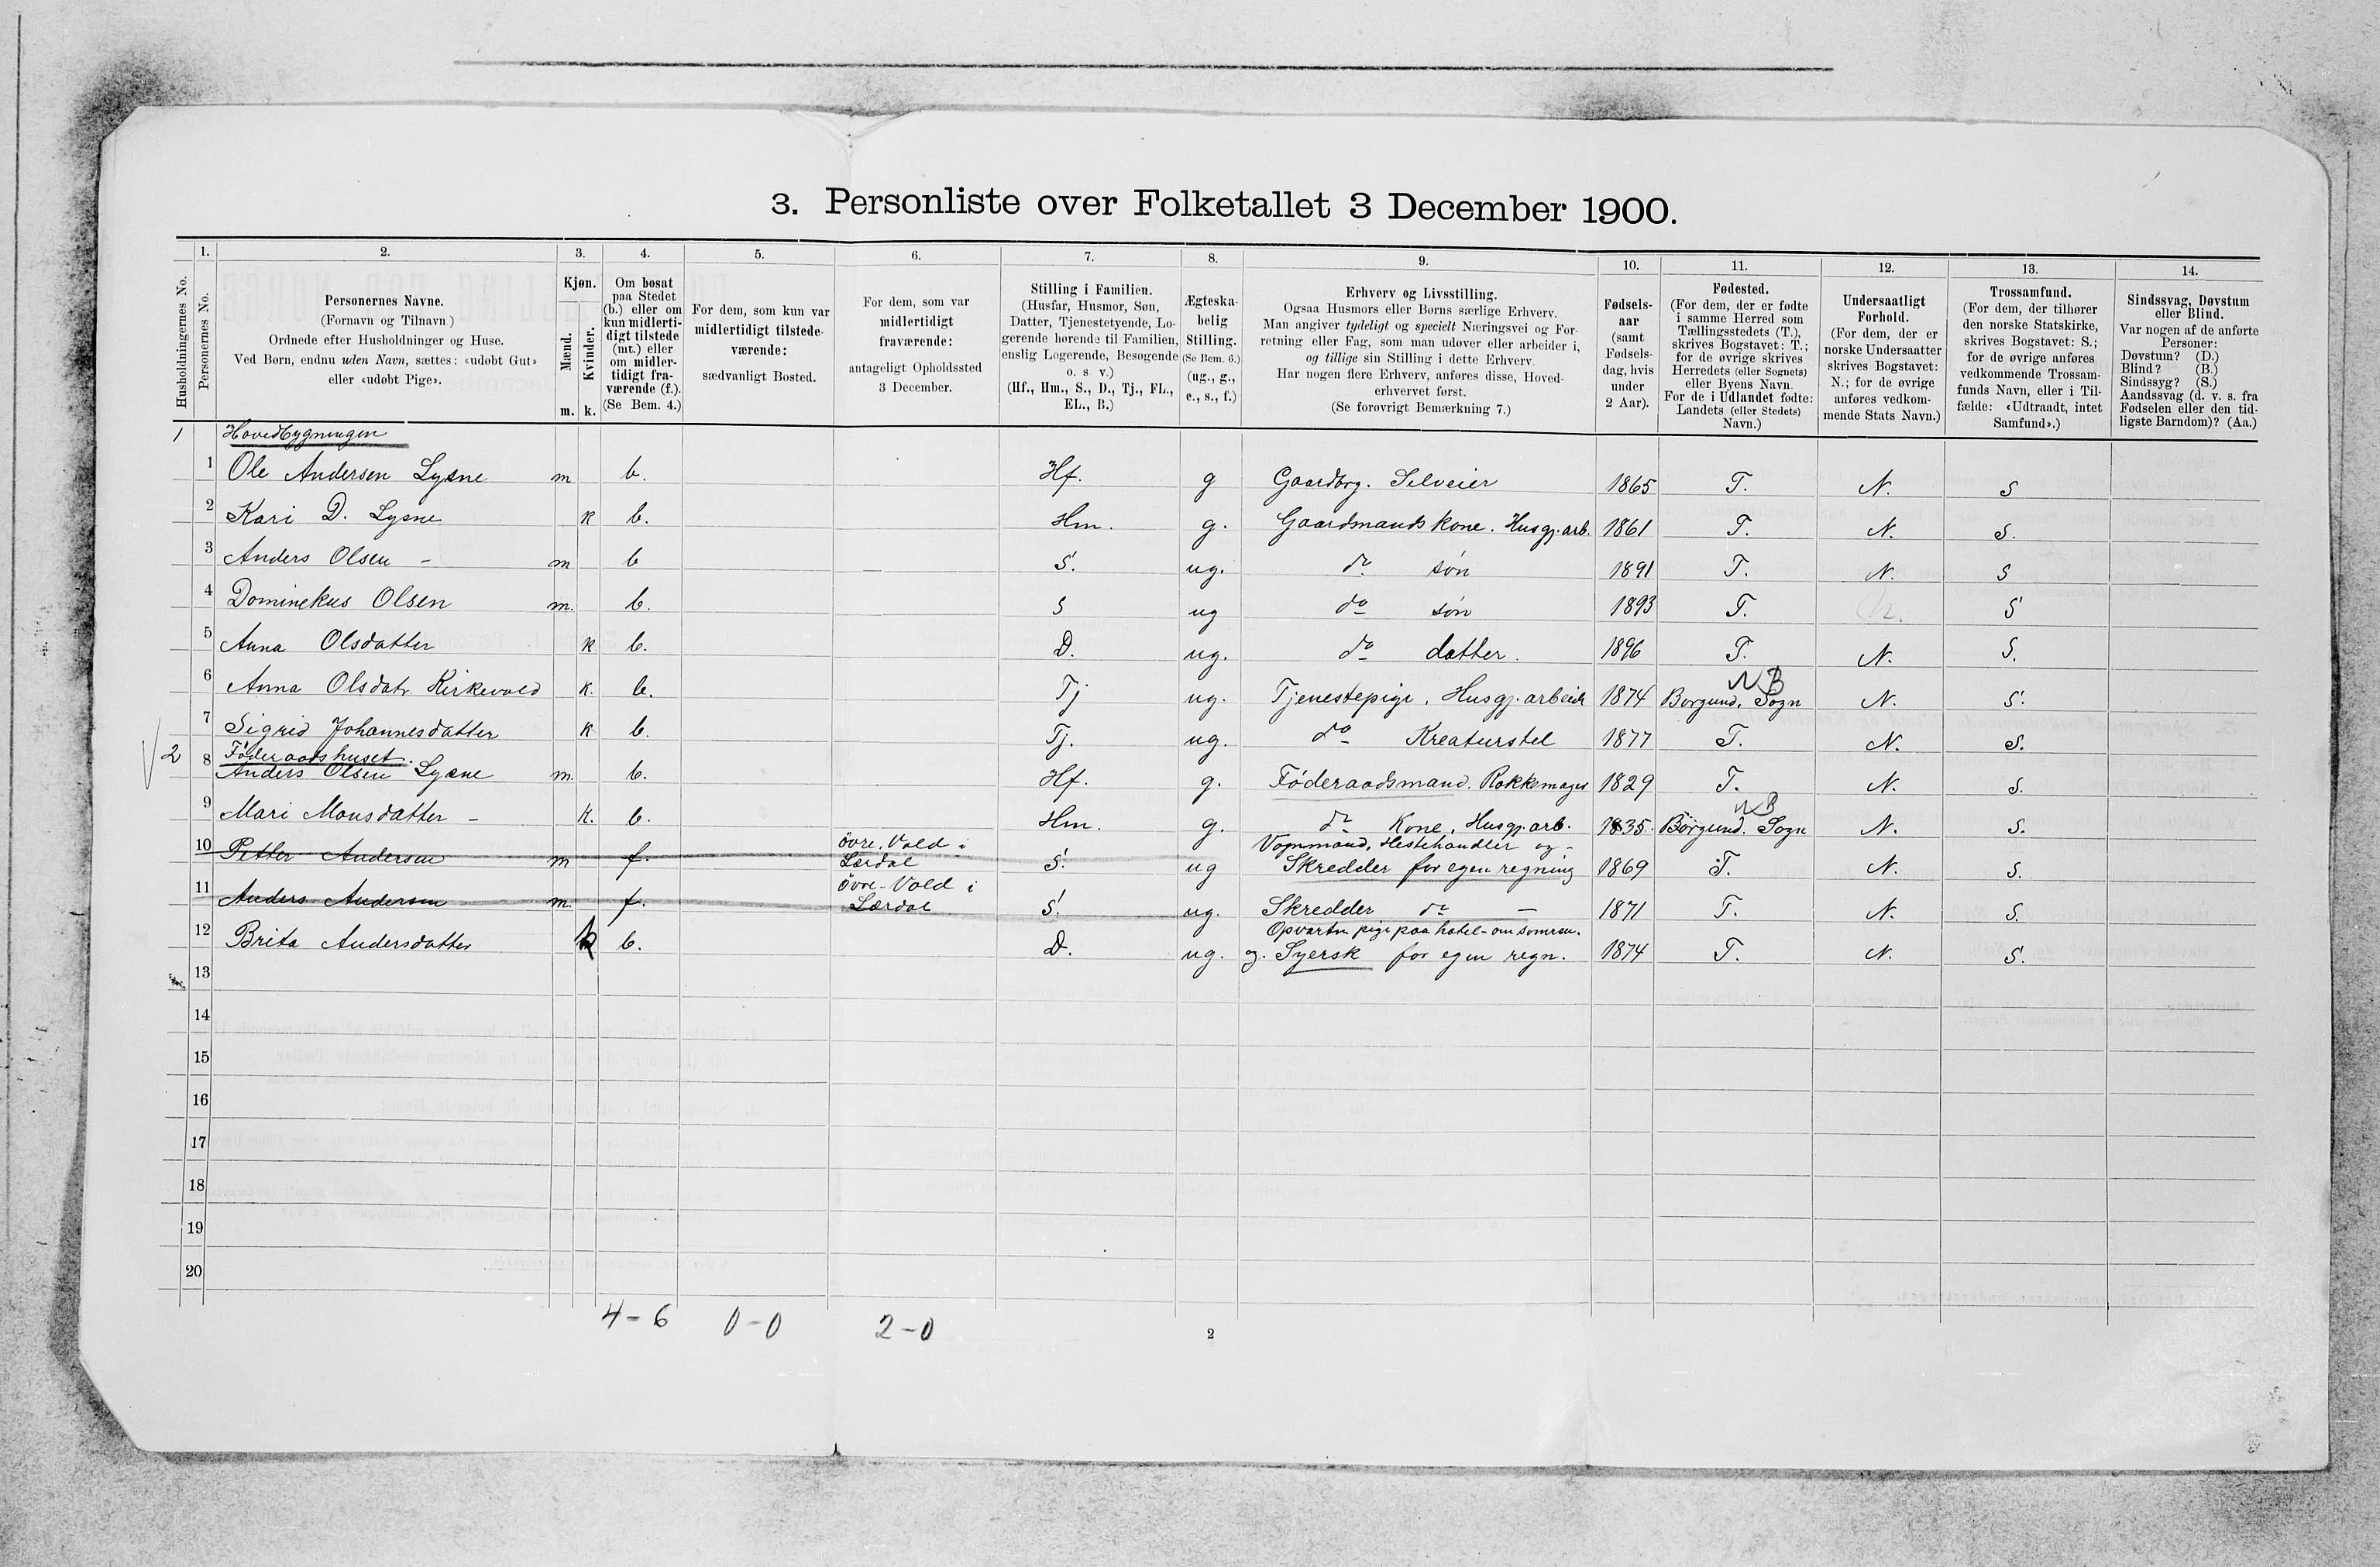 3. Personliste over Folketallet 3 December 1900.
Husholdningernes No.
1.
Personernes No.
2.
Personernes Navne.
(Fornavn og Tilnavn)
Ordnede efter Husholdninger og Huse.
Ved Børn, endnu uden Navn, sættes: «udøbt Gut»
eller «udøbt Pige».
3.
Kjøn.
Mænd.
Kvinder.
m. k.
4.
Om bosat
paa Stedet
(b.) eller om
kun midlerti-
digt tilstede
(mt.) eller
om midler-
tidigt fra-
værende (f.).
(Se Bem. 4.)
5.
For dem, som kun var
midlertidigt tilstede-
værende:
sædvanligt Bosted.
6.
For dem, som var
midlertidigt
fraværende:
antageligt Opholdssted
3 December.
7.
Stilling i Familien.
(Husfar, Husmor, Søn,
Datter, Tjenestetyende, Lo-
gerende hørende til Familien,
enslig Logerende, Besøgende
o. s v.)
(Hf., Hm., S., D., Tj., FL.,
EL., B.)
8.
Ægteska-
belig
Stilling.
(Se Bem. 6.)
(ug., g.,
e., s., f.)
9.
Erhverv og Livsstilling.
Ogsaa Husmors eller Børns særlige Erhverv.
Man angiver tydeligt og specielt Næringsvei og For-
retning eller Fag, som man udøver eller arbeider i,
og tillige sin Stilling i dette Erhverv.
Har nogen flere Erhverv, anføres disse, Hoved-
erhvervet først.
(Se forøvrigt Bemærkning 7.)
10.
Fødsels-
aar
(samt
Fødsels-
dag, hvis
under
2 Aar).
11.
Fødested.
(For dem, der er fødte
i samme Herred som
Tællingsstedets (T.),
skrives Bogstavet: T.;
for de øvrige skrives
Herredets (eller Sognets)
eller Byens Navn.
For de i Udlandet fødte:
Landets (eller Stedets)
Navn.)
12.
Undersaatligt
Forhold.
(For dem, der er
norske Undersaatter
skrives Bogstavet:
N.; for de øvrige
anføres vedkom-
mende Stats Navn.)
13.
Trossamfund.
(For dem, der tilhører
den norske Statskirke,
skrives Bogstavet: S.;
for de øvrige anføres
vedkommende Trossam-
funds Navn, eller i Til-
fælde: «Udtraadt, intet
Samfund».)
14.
Sindssvag, Døvstum
eller Blind.
Var nogen af de anførte
Personer:
Døvstum? (D.)
Blind? (B.)
Sindssyg? (S.)
Aandssvag (d. v. s. fra
Fødselen eller den tid-
ligste Barndom)? (Aa.)
1 Hovedbygningen
1 Ole Andersen Lysne m b. Hf. g Gaardbrg. Selveier 1865 T. N. S
2 Kari D. Lysne k b. Hm. g. Gaardmandskone. Husgj. arb. 1861 T. N. S.
3 Anders Olsen - m b - S. ug. do søn 1891 T. N. S
4 Dominekus Olsen m. b. S ug do søn 1893 T. N. S
5 Anna Olsdatter k b. D. ug. do datter. 1896 T. N. S.
6 Anna Olsdatr Kirkevold k. b. Tj ug. Tjenestepige, Husgj. arbeide 1874 Borgund, Sogn NB N. S.
7 Sigrid Johannesdatter k b. Tj. ug. do Kreaturstel 1877 T. N. S.
2 Föderaadshuset.
8 Anders Olsen Lysne m. b. Hf. g. Föderaadsmand. Rokkemager 1829 T. N. S.
9 Mari Monsdatter - k. b. Hm. g. do Kone, Husgj. arb. 1835 Borgund. Sogn NB N. S.
övre. Vold i Vognmand, Hestehandler og -
10 Petter Andersen m f. Lærdal S. ug Skredder for egen regning 1869 T. N. S.
övre-Vold i
11 Anders Andersen m. f. Lærdal S. ug. Skredder do - 1871 T. N. S.
Opvartn. pige paa hotel - om somren.
12 Brita Andersdatter k b. D. ug. og. Syersk for egen regn. 1874 T. N. S.
13
14
15
16
17
18
19
20
4-6 0-0 2-0
2